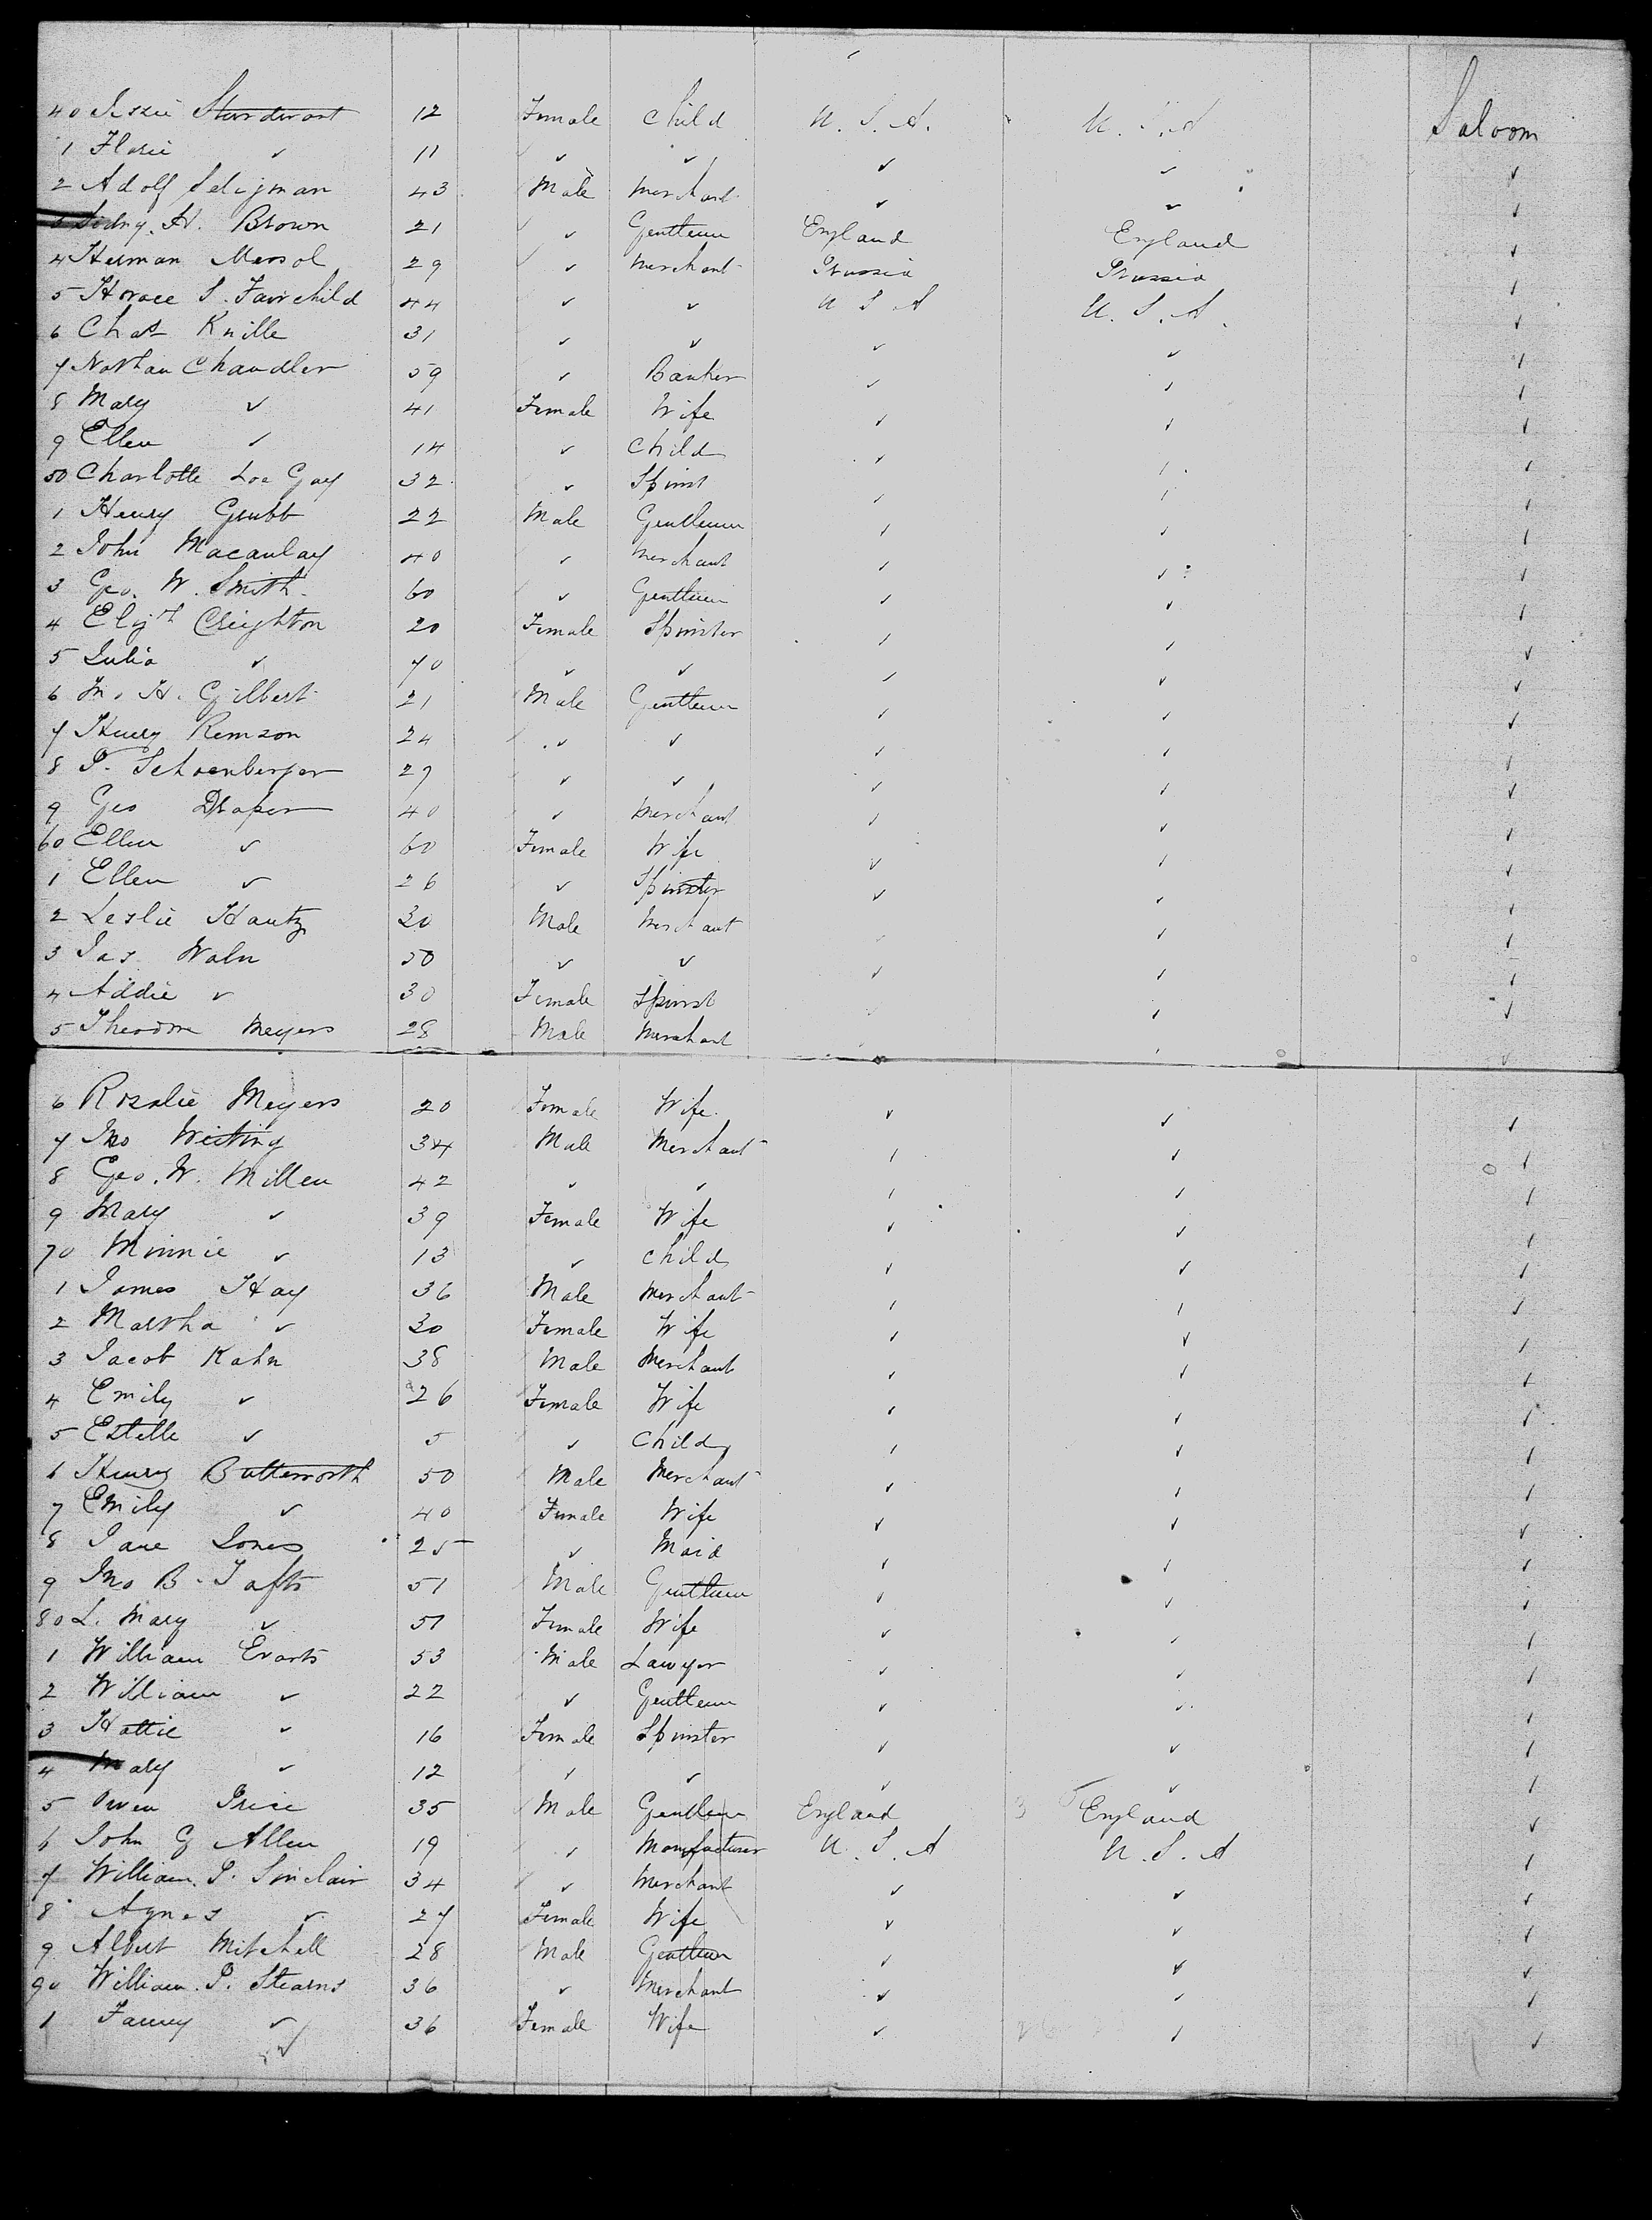 40 Jessie Sturdevant 12 Female Child U. S. A. U. S. A Saloon
1 Flosie ✓ 11 ✓ ✓ ✓ ✓ ✓
2 Adolf Seligman 43 Male Merchant ✓ ✓ ✓
3 Sidny. H. Brown 21 ✓ Gentleman England England ✓
4 Herman 29 ✓ Merchant Prussia Prussia ✓
5 Horace S. Fairchild 44 ✓ ✓ U S A U. S. A. ✓
6 Chas Knille 31 ✓ ✓ ✓ ✓ ✓
7 Nathan Chandler 59 ✓ Banker ✓ ✓ ✓
8 Mary ✓ 41 Female Wife ✓ ✓ ✓
9 Ellen ✓ 14 ✓ Child ✓ ✓ ✓
50 Charlotte Gay 32 ✓ Spinst ✓ ✓ ✓
1 Henry Grubb 22 Male Gentleman ✓ ✓ ✓
2 John Macaulay 40 ✓ Merchant ✓ ✓ ✓
3 Geo. W. Smith 60 ✓ Gentleman ✓ ✓ ✓
4 Elizth Creighton 20 Female Spinster ✓ ✓ ✓
5 Julia ✓ 70 ✓ ✓ ✓ ✓ ✓
6 H. Gilbert 21 Male Gentleman ✓ ✓ ✓
7 Henry Remson 24 ✓ ✓ ✓ ✓ ✓
8 P. Schoenberger 27 ✓ ✓ ✓ ✓ ✓
9 Geo Draper 40 ✓ Merchant ✓ ✓ ✓
60 Ellen ✓ 60 Female Wife ✓ ✓ ✓
1 Ellen ✓ 26 ✓ Spinster ✓ ✓ ✓
2 Leslie Hautz 30 Male Merchant ✓ ✓ ✓
3 Jas Waln 50 ✓ ✓ ✓ ✓ ✓
4 Addie ✓ 30 Female Spinst ✓ ✓ ✓
5 Theodore Meyers 28 Male Merchant ✓ ✓ ✓
6 Rosalie Meyers 20 Female Wife ✓ ✓ ✓
7 Jno Westing 34 Male Merchant ✓ ✓ ✓
8 Geo. W. Millen 42 ✓ ✓ ✓ ✓ ✓
9 Mary ✓ 39 Female Wife ✓ ✓ ✓
70 Minnie ✓ 13 ✓ Child ✓ ✓ ✓
1 James Hay 36 Male Merchant ✓ ✓ ✓
2 Martha ✓ 30 Female Wife ✓ ✓ ✓
3 Jacob Kahn 38 Male Merchant ✓ ✓ ✓
4 Emily ✓ 26 Female Wife ✓ ✓ ✓
5 Estelle ✓ 5 ✓ Child ✓ ✓ ✓
6 Henry Butterworth 50 Male Merchant ✓ ✓ ✓
7 Emily ✓ 40 Female Wife ✓ ✓ ✓
8 Jane Jones 25 ✓ Maid ✓ ✓ ✓
9 Jno B. Tafts 51 Male Gentleman ✓ ✓ ✓
80 L. Mary ✓ 51 Female Wife ✓ ✓ ✓
1 William Evarts 53 Male Lawyer ✓ ✓ ✓
2 William ✓ 22 ✓ Gentleman ✓ ✓ ✓
3 Hattie ✓ 16 Female Spinster ✓ ✓ ✓
4 Mary ✓ 12 ✓ ✓ ✓ ✓ ✓
5 Owen Price 35 Male Gentleman England England ✓
6 John G Allen 19 ✓ Manufacturer U. S. A U. S. A ✓
7 William. P. Sinclair 34 ✓ Merchant ✓ ✓ ✓
8 Agnes ✓ 27 Female Wife ✓ ✓ ✓
9 Albert Mitchell 28 Male Gentleman ✓ ✓ ✓
90 William. P. Stearns 36 ✓ Merchant ✓ ✓ ✓
1 Fanny ✓ 36 Female Wife ✓ ✓ ✓